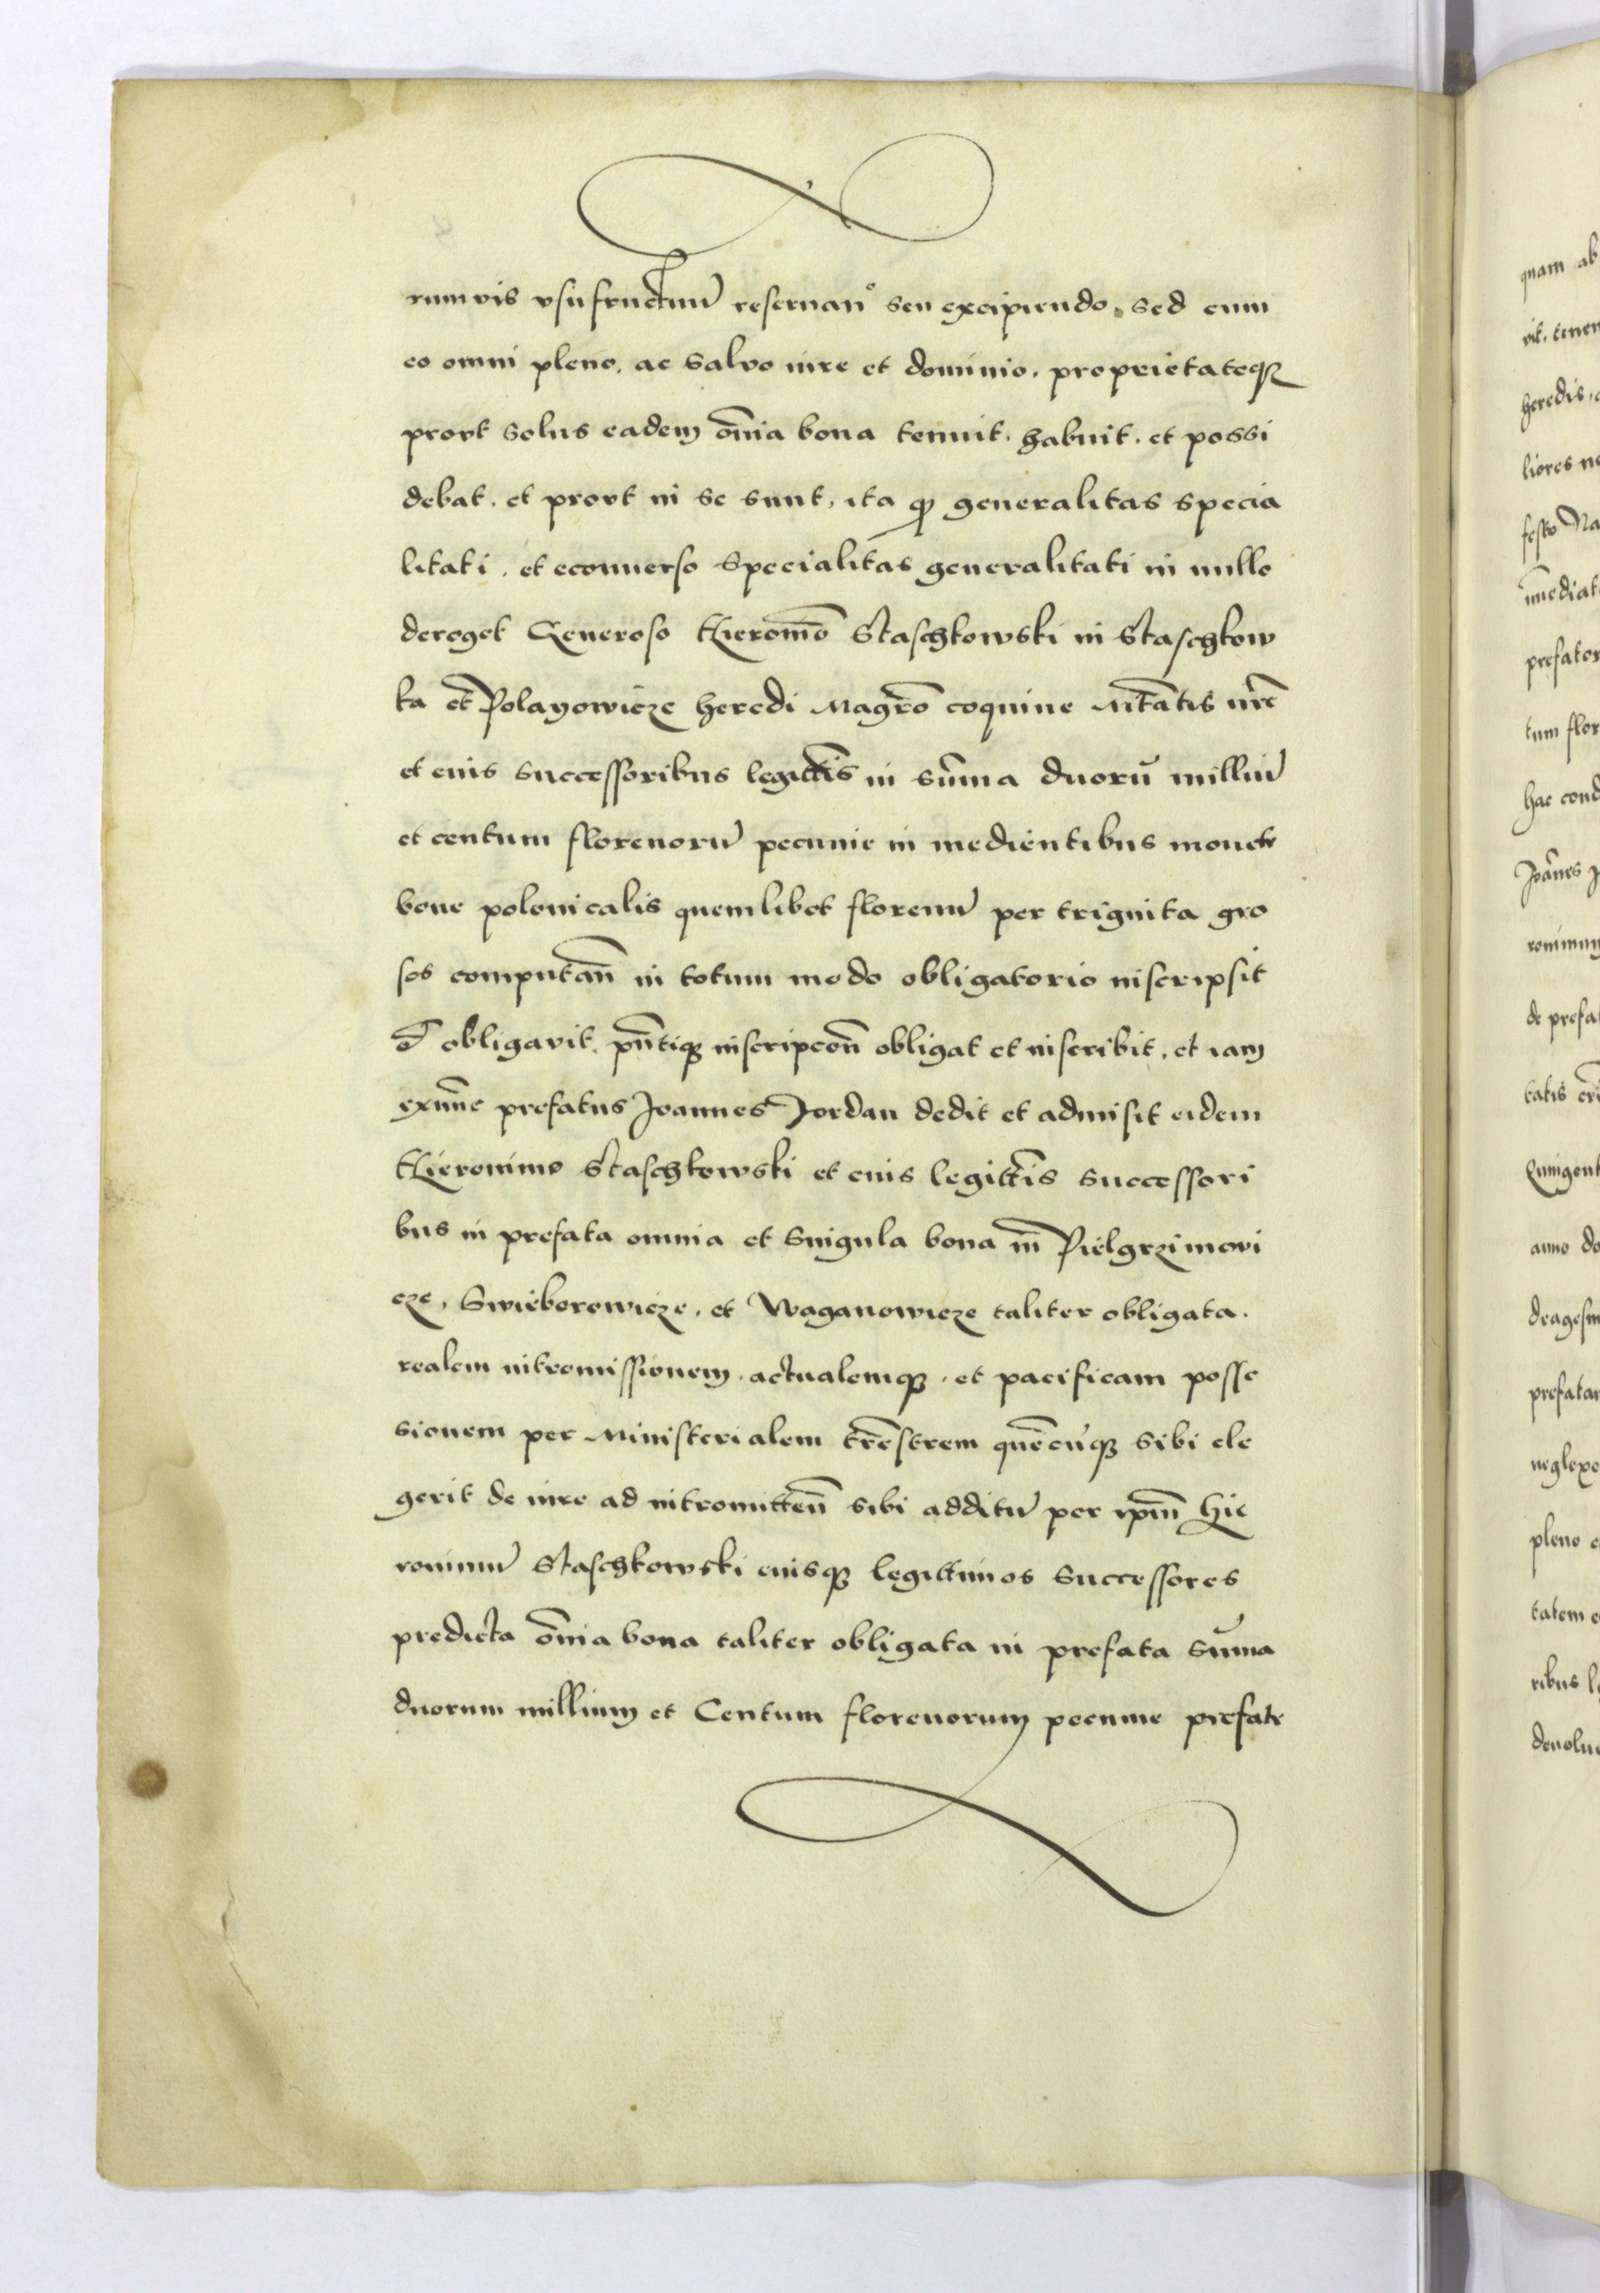 rumvis vsufructuū reservanᵒ seu excipiendo. Sed cum
eo omni pleno. ac salvo iure et dominio. proprietateqꝫ
provt solus eadem om̄ia bona tenuit. habuit. et possi
debat. et provt in se sunt, ita ꝙ generalitas specia
litati. et econuerso specialitas generalitati in nullo
deroget Generoso Hieronīo Staschkowski in Staschkow
ka et Polanowicze heredi Magr̄o coquine Mtātis nr̄e
et eius successoribus legitt̄is in sūma duorū milliū
et centum florenorū pecunie in medientibus monete
bone polonicalis quemlibet florenū per triginta gro
sos computan̄ in totum modo obligatorio inscripsit
et obligavit. pn̄tiqꝫ inscripcon̄ obligat et inscribit, et iam
exnūc prefatus Joannes Jordan dedit et admisit eidem
Hieronimo Staschkowski et eius legitt̄is successori
bus in prefata omnia et singula bona in̄ Pielgrzimovi
cze, Swieborowicze, et Waganowicze taliter obligata.
realem intromissionem. actualemqꝫ. et pacificam posse
sionem per Ministerialem tr̄estrem quēcūqꝫ sibi ele
gerit de iure ad intromitten̄ sibi additū per ip̄m Hie
ronimū Staschkowski eiusqꝫ legittimos successores
predicta om̄ia bona taliter obligata in prefata sūma
duorum millium et Centum florenorum pecunie prefate
quam ab
vit. tenen
heredis.
liores
festo Na
im̄ediat
prefator
tum flor
hac cond
Joānes
ronimum
de prefa
tatis
Quingent
anno do
dragesi
prefata
neglexe
pleno
tatem
ribus
devolu